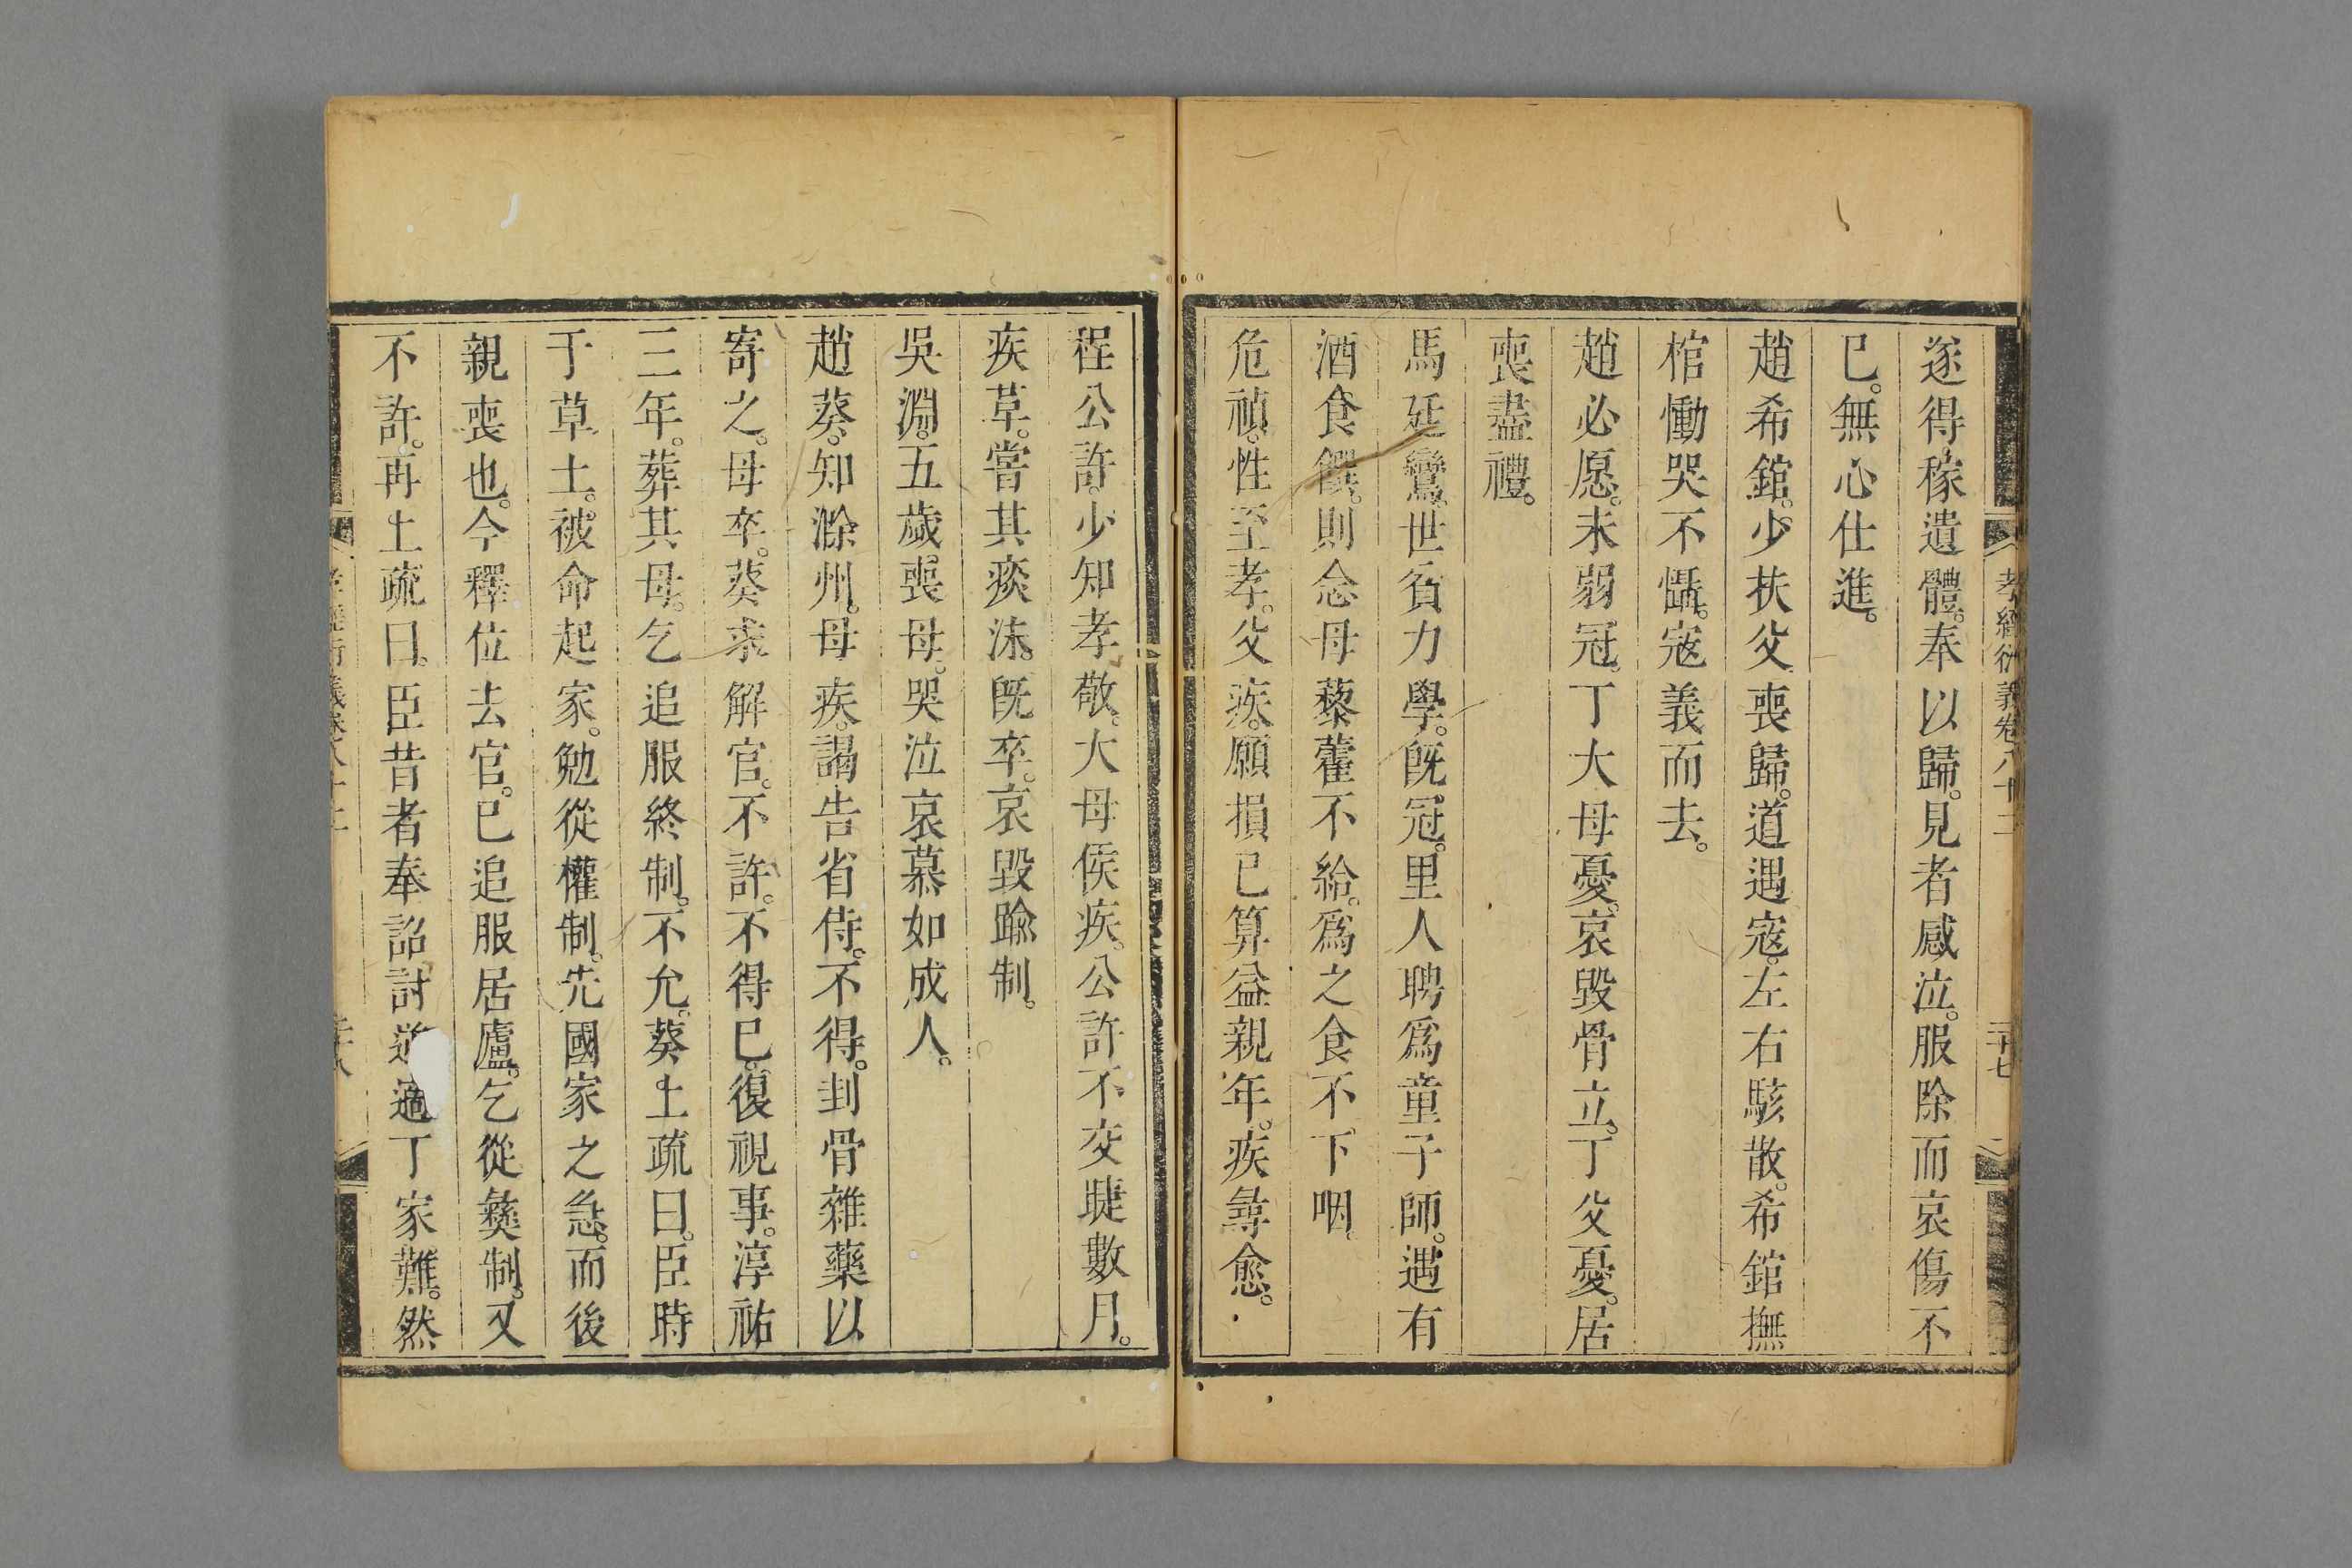 孝經衍義卷八十二
二十七
遂得稼遺體。奉以歸。見者感泣。服除而哀傷不
已。無心仕進。
趙希錧。少扶父喪歸。道遇寇。左右駭散。希錧撫
棺慟哭不慑。寇義而去。
趙必愿。未弱冠。丁大母憂。哀毀骨立。丁父憂。居
喪盡禮。
馬廷鸞。世貧力學。旣冠。里人聘爲童子師。遇有
酒食饌。則念母藜藿不給。爲之食不下咽。
危禎。性至孝。父疾。願損已算益親年。疾尋愈。
程公許。少知孝敬。大母侯疾。公許不交睫數月。
疾革。嘗其痰沫。旣卒。哀毀踰制。
吳淵。五歲。喪母。哭泣哀慕如成人。
趙葵。知滁州。母疾。謁告省侍。不得。刲骨雜藥以
寄之。母卒。葵求解官。不許。不得已。復視事。淳祐
三年。葬其母。乞追服終制。不允。葵上疏曰。臣時
于草土。被命起家。勉從權制。先國家之急。而後
親喪也。今釋位去官。已追服居廬。乞從彝制。又
不許。再上疏曰。臣昔者奉詔討適丁家難。然